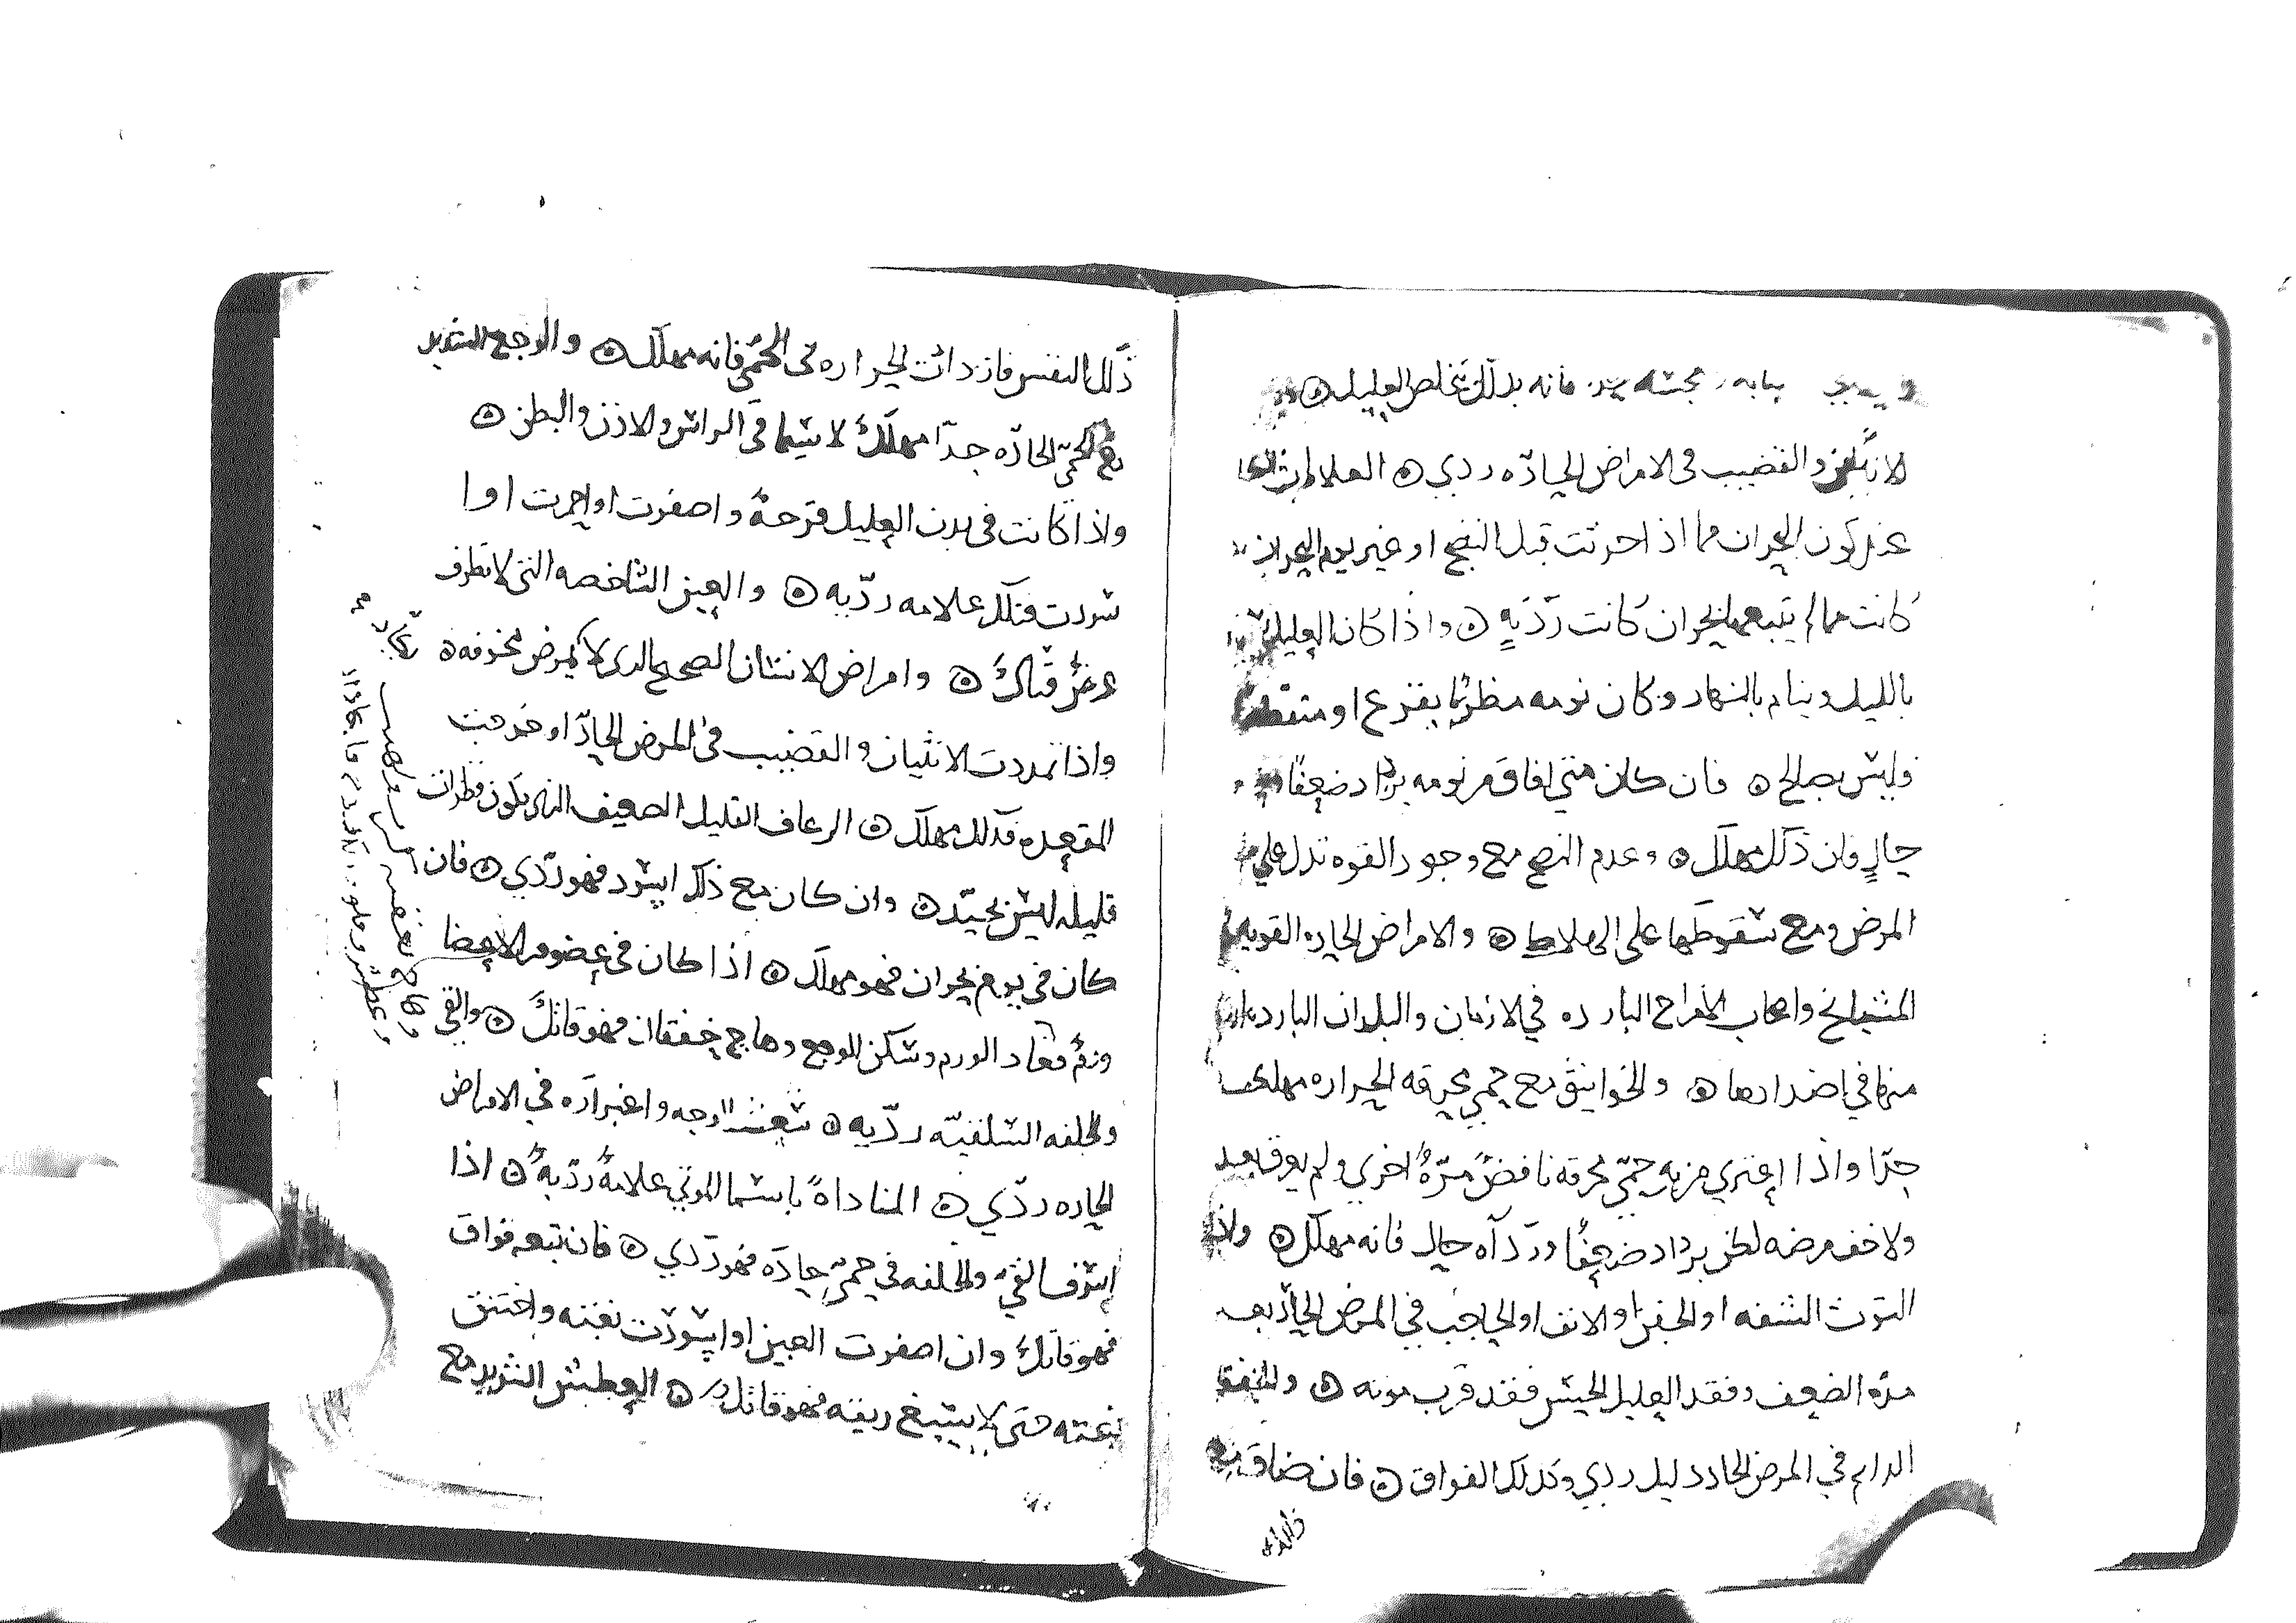 فانه بذلك تخلص العليل ۞
والقضيب في الامراض الحاده ردي ۞ العلامات
البحران مما اذا حدثت قبل النضج او غير يوم البحران
كانت مما لم يتبعها بحران كانت رديه ۞ واذا كان العليل
بالليل وينام بالنهار وكان نومه مضطربا يفزع او متقطعا
فليس بصالح ۞ فان كان متي افاق من نومه يزداد ضعفا
حال فان ذلك مهلك ۞ وعدم النضج مع وجود القوه تدل علي
المرض ومع سقوطها علي الهلاك ۞ والامراض الحاده القويه
المشايخ واصحاب الامزاج البارده في الازمان والبلدان البارده
منها في اضدادها ۞ والخوانيق مع حمي محرقه الحراره مهلك
جدا واذا اعتري من به حمي محرقه نافض مرة اخري ولم يعرق بعد
ولا خف مرضه لكن يزداد ضعفا ورداه حال فانه مهلك ۞ واذا
التوت الشفه او الجفن او الانف او الحاجب في المرض الحاد بعد
مده الضعف وفقد العليل الحس فقد قرب موته ۞
الدايم في المرض الحاد دليل ردي وكذلك الفواق ۞ فان ضاق مع
ذلك النفس فازدادت الحراره في الحمي فانه مهلك ۞ والوجع الشديد
مع الحمي الحاده جدا مهلك لا سيما في الراس والاذن والبطن ۞
واذا كانت في بدن العليل قرحة واصفرت او احمرت او ا
سودت فتلك علامه رديه ۞ والعين الشاخصه التي لا تطرف
قتاله ۞ وامراض الانسان الصحيح الذي لا يمرض مخوفه ۞
واذا تمددت الانثيان والقضيب في المرض الحاد او خرجت
المقعده فذلك مهلك ۞ الرعاف القليل الضعيف الذي يكون قطرات
قليله ليس بجيد ۞ وان كان مع ذلك اسود فهو ردي ۞ فان
كان في يوم بحران فهو مهلك ۞ اذا كان في عضو من الاعضا
ورم فغاد الورم وسكن الوجع وهاج خفقان فهو قاتل ۞ والقي
والخلفه السلقيه رديه ۞ الوجه واغبراره في الامراض
الحاده ردي ۞ المناداة باسما الموتي علامة ردية ۞ اذا
اسرف القي والخلفه في حمي حاده فهو ردي ۞ فان تبعه فواق
فهو قاتل وان اصفرت العين او اسودت بغته واختنق
بغته حتي لا يسيغ ريقه فهو قاتل ۞ العطش الشديد مع